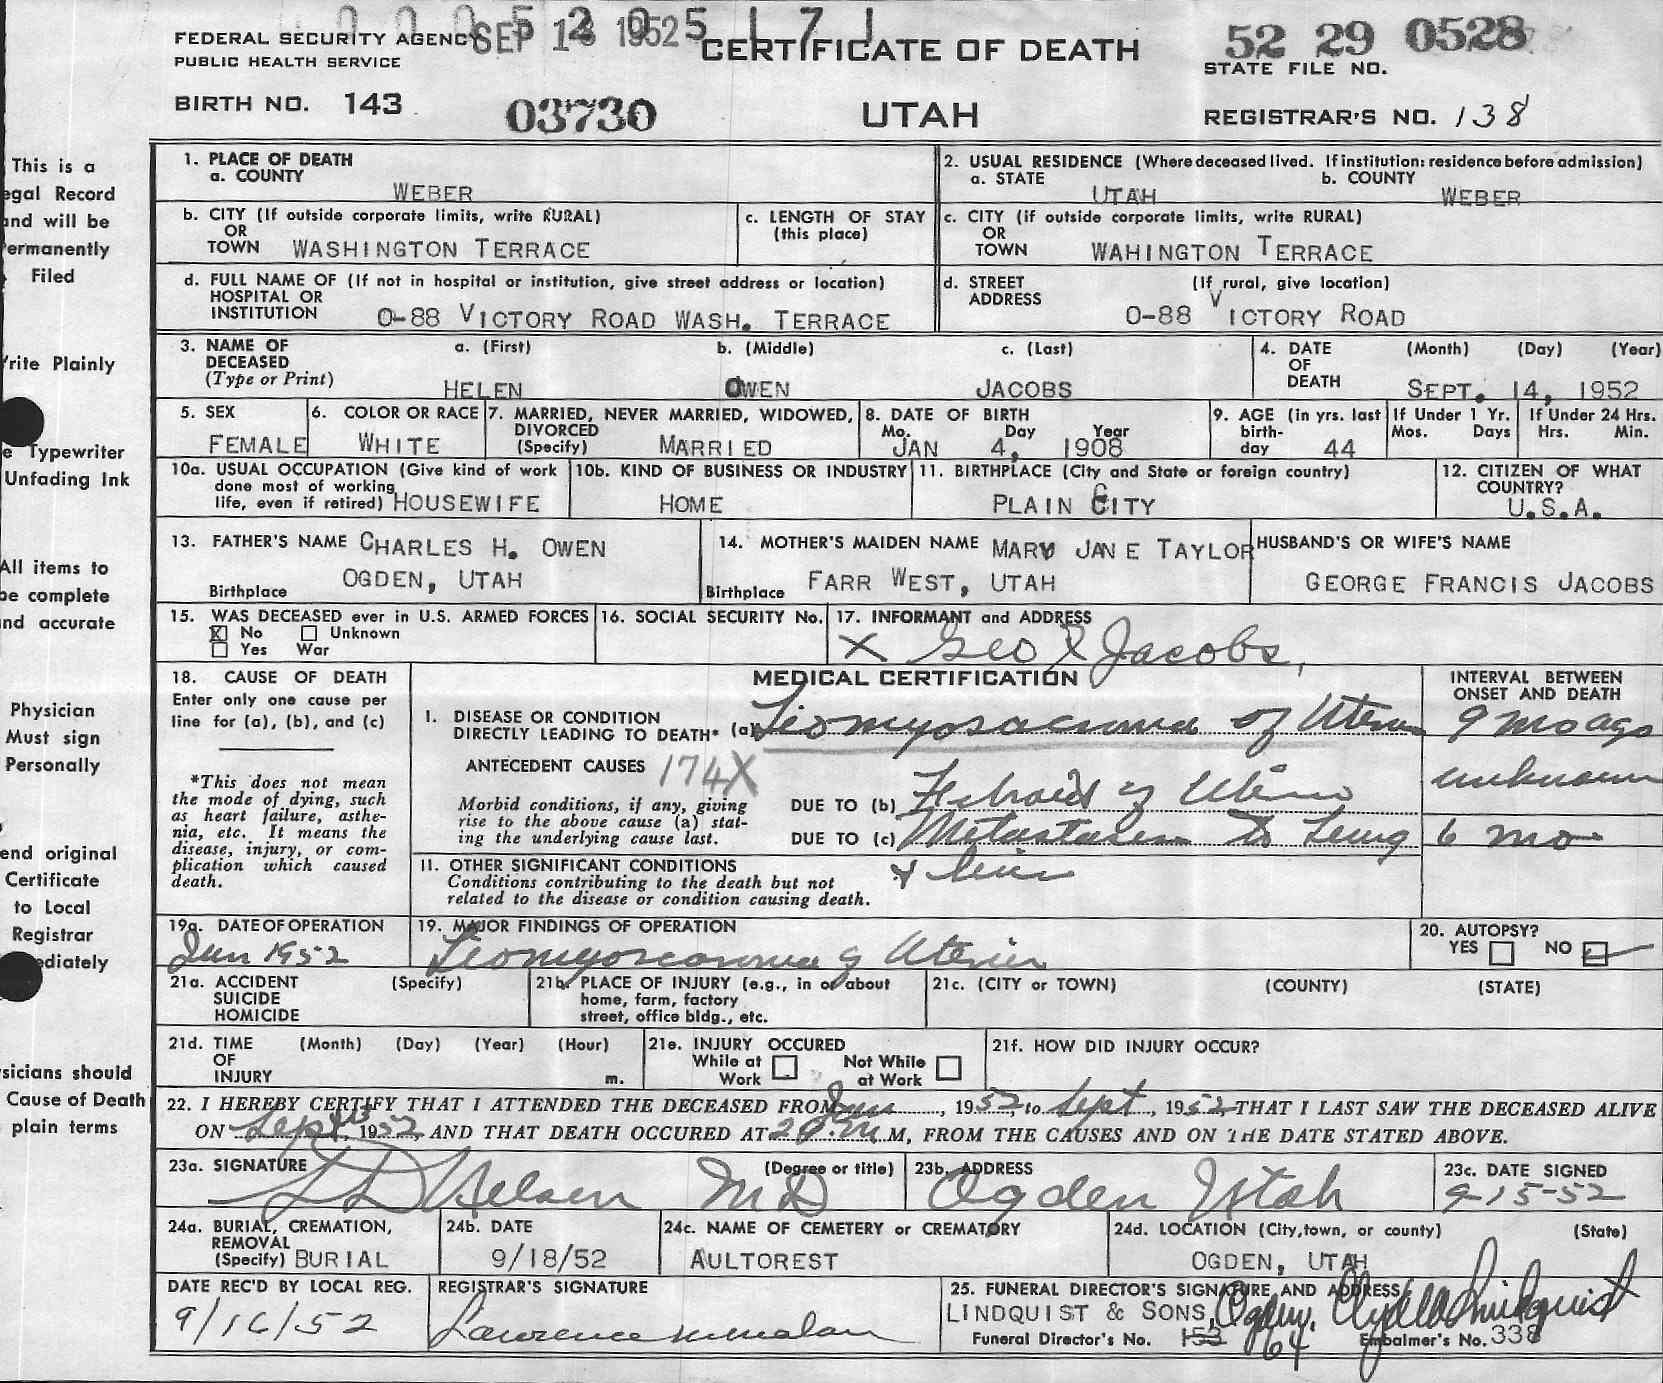 FEDERAL SECURITY AGENCY
PUBLIC HEALTH SERVICE
SEP 1952
CERTIFICATE OF DEATH
52 29 0528
STATE FILE NO.
BIRTH NO. 143
03730
UTAH
REGISTRAR'S NO. 138
This is a
egal Record
and will be
ermanently
Filed
rite Plainly
e Typewriter
Unfading Ink
All items to
be complete
nd accurate
Physician
Must sign
Personally
end original
Certificate
to Local
Registrar
ediately
sicians should
Cause of Death
plain terms
1. PLACE OF DEATH
a. COUNTY
WEBER
2. USUAL RESIDENCE (Where deceased lived. If institution: residence before admission)
a. STATE UTAH b. COUNTY WEBER
b. CITY (If outside corporate limits, write RURAL)
OR
TOWN WASHINGTON TERRACE
c. LENGTH OF STAY
(this place)
c. CITY (if outside corporate limits, write RURAL)
OR
TOWN WAHINGTON TERRACE
d. FULL NAME OF (If not in hospital or institution, give street address or location)
HOSPITAL OR
INSTITUTION O-88 VICTORY ROAD WASH. TERRACE
d. STREET (If rural, give location)
ADDRESS
O-88 VICTORY ROAD
3. NAME OF a. (First) b. (Middle) c. (Last)
DECEASED
(Type or Print) HELEN OWEN JACOBS
4. DATE (Month) (Day) (Year)
OF
DEATH SEPT. 14, 1952
5. SEX
FEMALE
6. COLOR OR RACE
WHITE
7. MARRIED, NEVER MARRIED, WIDOWED,
DIVORCED
(Specify) MARRIED
8. DATE OF BIRTH
Mo. Day Year
JAN 4, 1908
9. AGE (in yrs. last
birth-
day 44
If Under 1 Yr.
Mos. Days
If Under 24 Hrs.
Hrs. Min.
10a. USUAL OCCUPATION (Give kind of work
done most of working
life, even if retired) HOUSEWIFE
10b. KIND OF BUSINESS OR INDUSTRY
HOME
11. BIRTHPLACE (City and State or foreign country)
PLAIN CITY
12. CITIZEN OF WHAT
COUNTRY?
U.S.A.
13. FATHER'S NAME CHARLES H. OWEN
Birthplace OGDEN, UTAH
14. MOTHER'S MAIDEN NAME MARY JANE TAYLOR
Birthplace FARR WEST, UTAH
HUSBAND'S OR WIFE'S NAME
GEORGE FRANCIS JACOBS
15. WAS DECEASED ever in U.S. ARMED FORCES
X No Unknown
Yes War
16. SOCIAL SECURITY No.
17. INFORMANT and ADDRESS
X Geo F Jacobs,
18. CAUSE OF DEATH
Enter only one cause per
line for (a), (b), and (c)
*This does not mean
the mode of dying, such
as heart failure, asthe-
nia, etc. It means the
disease, injury, or com-
plication which caused
death.
MEDICAL CERTIFICATION
INTERVAL BETWEEN
ONSET AND DEATH
I. DISEASE OR CONDITION
DIRECTLY LEADING TO DEATH* (a) Leiomyosarcoma of Uterus 9 mo ago
ANTECEDENT CAUSES 174X
Morbid conditions, if any, giving
rise to the above cause (a) stat-
ing the underlying cause last.
DUE TO (b) Fibroids of Uterus unknown
DUE TO (c) Metastases to Lung 6 mo
& liver
11. OTHER SIGNIFICANT CONDITIONS
Conditions contributing to the death but not
related to the disease or condition causing death.
19a. DATE OF OPERATION
Jan 1952
19. MAJOR FINDINGS OF OPERATION
Leiomyosarcoma of Uterus
20. AUTOPSY?
YES NO
21a. ACCIDENT (Specify)
SUICIDE
HOMICIDE
21b. PLACE OF INJURY (e.g., in or about
home, farm, factory
street, office bldg., etc.
21c. (CITY or TOWN) (COUNTY) (STATE)
21d. TIME (Month) (Day) (Year) (Hour)
OF
INJURY m.
21e. INJURY OCCURED
While at Work Not While at Work
21f. HOW DID INJURY OCCUR?
22. I HEREBY CERTIFY THAT I ATTENDED THE DECEASED FROM Jan, 1952 to Sept, 1952 THAT I LAST SAW THE DECEASED ALIVE
ON Sept, 1952, AND THAT DEATH OCCURED AT M, FROM THE CAUSES AND ON THE DATE STATED ABOVE.
23a. SIGNATURE (Degree or title)
L D Nelson MD
23b. ADDRESS
Ogden Utah
23c. DATE SIGNED
9-15-52
24a. BURIAL, CREMATION,
REMOVAL
(Specify) BURIAL
24b. DATE
9/18/52
24c. NAME OF CEMETERY or CREMATORY
AULTOREST
24d. LOCATION (City, town, or county) (State)
OGDEN, UTAH
DATE REC'D BY LOCAL REG.
9/16/52
REGISTRAR'S SIGNATURE
Lawrence
25. FUNERAL DIRECTOR'S SIGNATURE AND ADDRESS
LINDQUIST & SONS, Ogden, Clyde Lindquist
Funeral Director's No. 153 64 Embalmer's No. 338